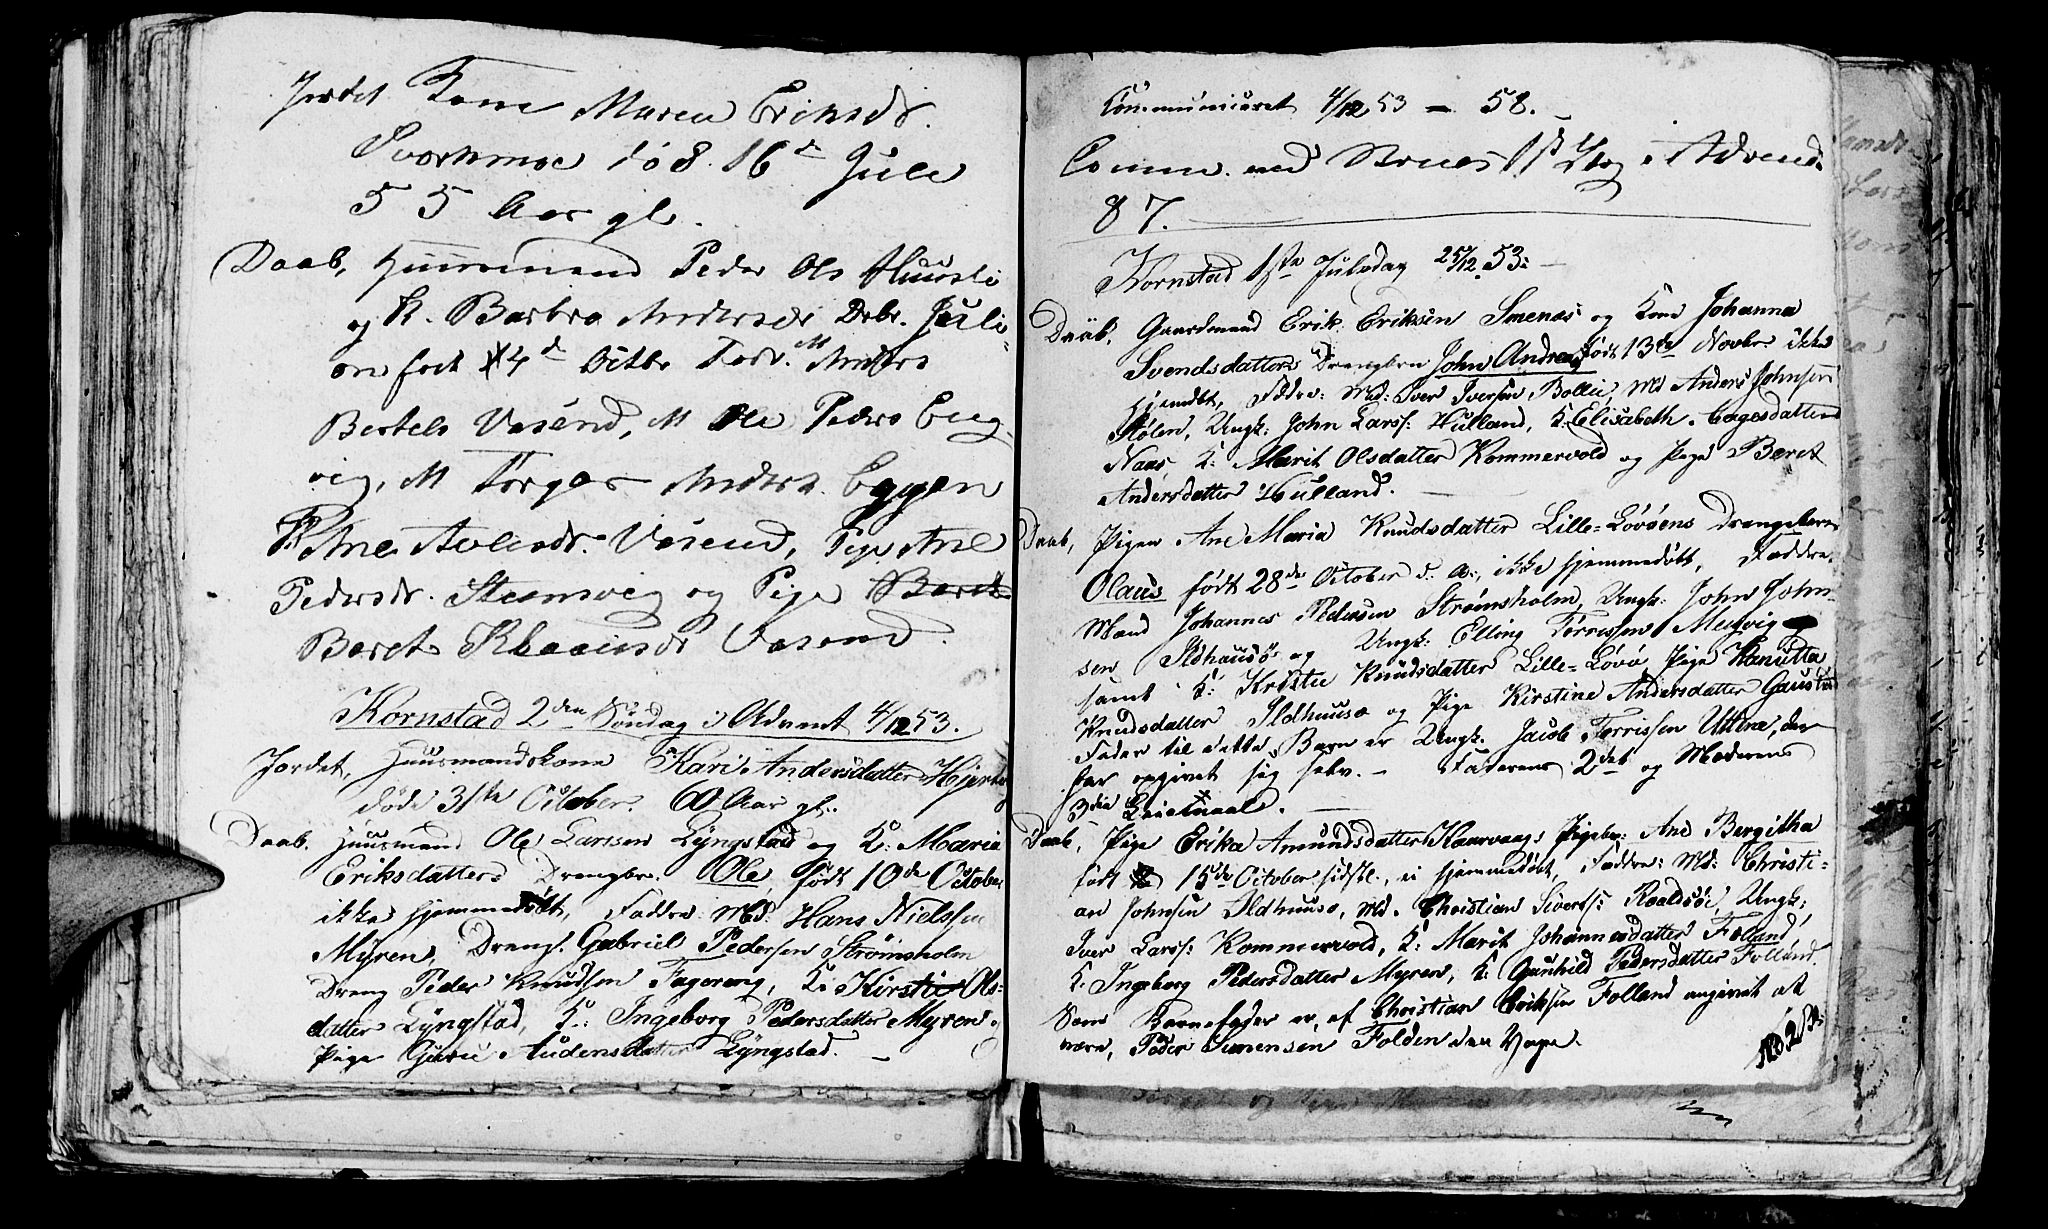 Jordet Kone Maren Eriksdr.
død 16de Jule
55 Aar gl.
Daab, Huusmand Peder Ols Huusli
og K. Barbro Andersdr Drbr. Juli-
ane født 4de Octbr Fadr. M Anders
Bertels Vasend, M Ole Peders Eng-
vig, M Torger Anders. Eggen
K Ane Pige Ane
Pedersdr. Steensvig og Pige Beret
Beret Klausdr Vasend.
Kornstad 2den Søndag i Advent 4/12 53.
Jordet, Huusmandskone Kari Andersdatter
døde 31te October. 60 Aar gl.
Daab. Huusmand Ole Larssen Lyngstad og K: Maria
Eriksdatters Drengbr. Ole, født 10de October
ikke hjemmedøbt, Faddre: Md: Hans Nielssen
Myren, Dreng. Gabriel Pedersen Strømsholm
Dreng Peder Knudsen Fagereng, K: Kirstie Ols-
datter Lyngstad, K: Ingeborg Pedersdatter Myren og
Pige Guru Audensdatter Lyngstad. —
Communiceret 4/12 53 — 58.
Comm. ved 1ste Advend
87.
Kornstad 1ste Juledag 25/12 53: —
Daab. Gaardmand Erik Eriksen Smenæs og Kone Johanna
Svendsdatters Drengbrn John Andreas født 13de Novbr. ikke
hjemdøbt, Faddre: Md: Iver Iversen Bollie, Md Anders Johnsen
Stølen, Ungk: John Larss: Hulland, K. Elisabeth Aagesdatter
Naas K: Marit Olsdatter Kommervold og Pige Beret
Andersdatter Hulland. —
Daab, Pigen Ane Maria Knudsdatter Lille-Løvøens Drengebarn
Olaus født 28de October d. A., ikke hjemmedøbt, Faddre.
Mand Johannes Pedersen Strømsholm, Ungk: John John-
sen Ildhuusø og Ungk: Elling Torrissen Medvig
samt K: Kristie Knudsdatter Lille-Løvø, Pige Hanitta
Knudsdatter Ildhuusø og Pige Kirstine Andersdatter Gaustad
Fader til dette Barn er Ungk. Jacob Torrissen Uttne, der
har opgivet sig selv. — Faderens 2det og Moderens
3die Leiermaal. —
Daab, Pige Erika Amundsdatter Haarvaags Pigebr: Ane Bergitha
født 15de October sidstl., ei hjemmedøbt, Faddre: Md: Christi-
an Johnsen Ildhuusø, Md. Christian Sivertss: Roaldsøe, Ungk:
Iver Larss: Kommervold, K: Marit Johannesdatter Folland,
K. Ingeborg Pedersdatter Myren, K: Gunhild Pedersdatter Folland.
Som Barnefader er, af Christian Eriksen Folland angivet at
være, Peder Simensen Folden den Yngre.